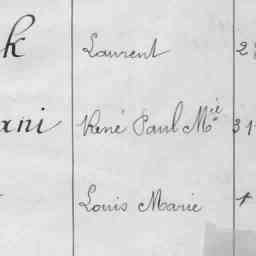 k Laurent 2
ani René Paul Mie 31
Louis Marie